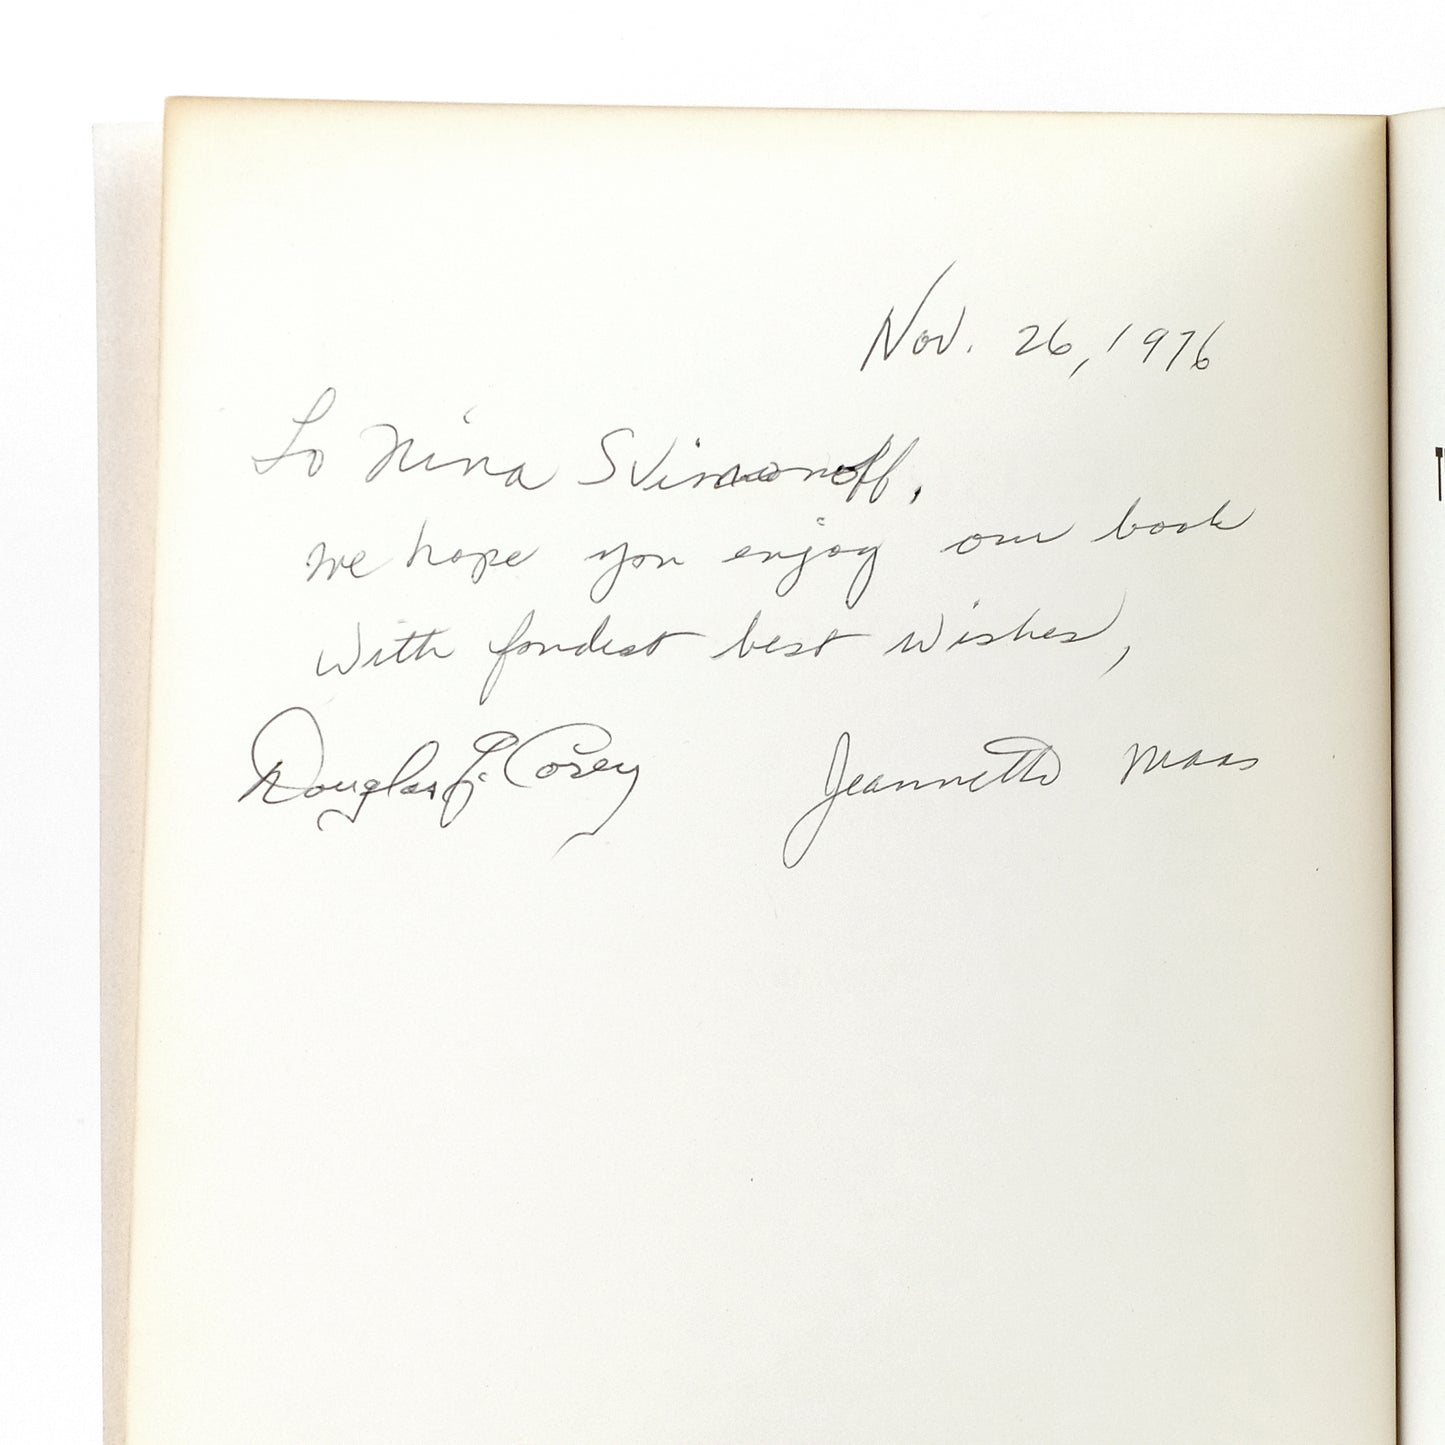 Nov. 26, 1976
To Nina Svimonoff,
we hope you enjoy our book
with fondest best wishes,
Douglas L. Corey Jeannette Maas